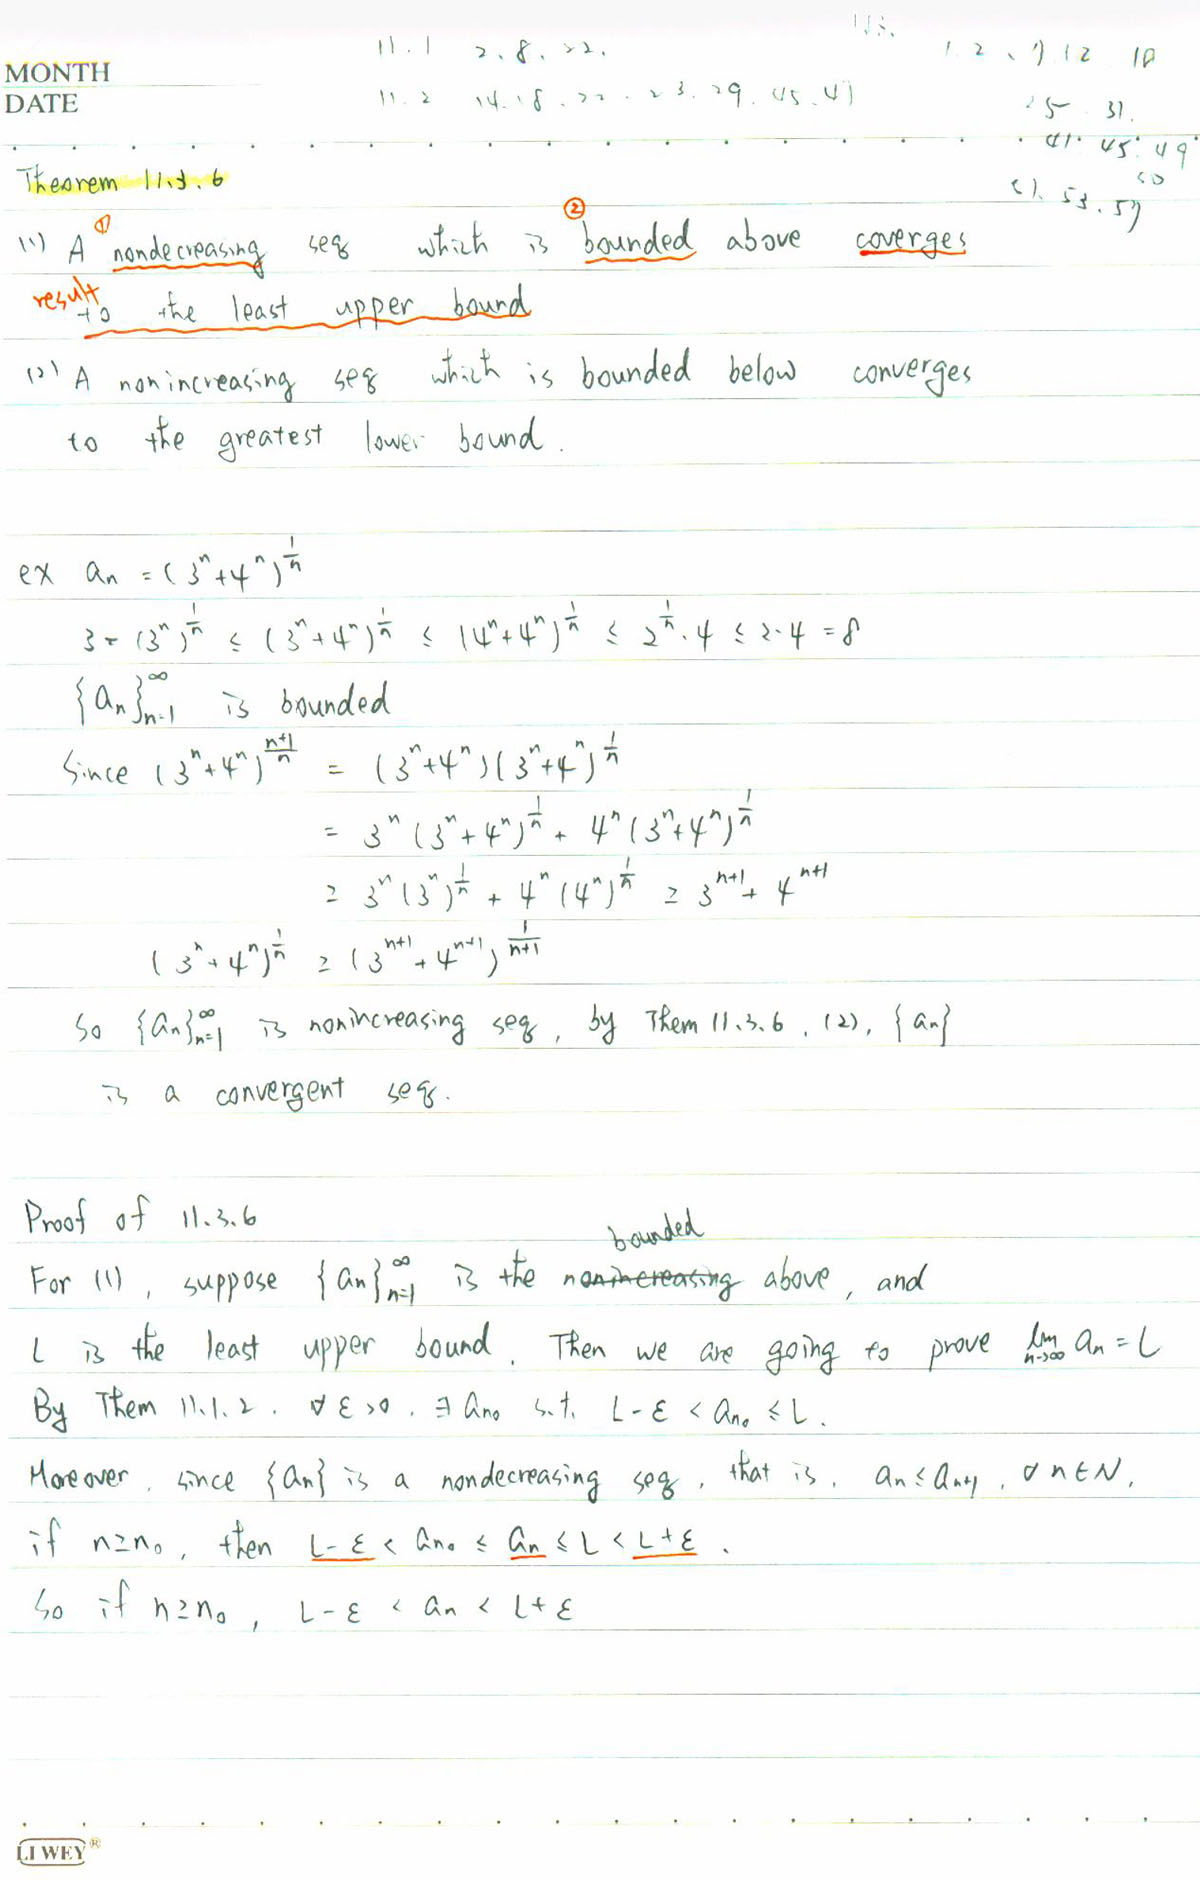 11.1 2.8.22.
MONTH
DATE
11.2 14.18.22.23.29.45.47
1.2、7.12
25 31.
41.45.49
51.53.57
Theorem 11.3.6
① ②
(1) A nondecreasing seq which is bounded above coverges
result
to the least upper bound
(2) A nonincreasing seq which is bounded below converges
to the greatest lower bound.
ex an = (3^n+4^n)^{1/n}
3 = (3^n)^{1/n} ≤ (3^n+4^n)^{1/n} ≤ (4^n+4^n)^{1/n} ≤ 2^{1/n}·4 ≤ 2·4 = 8
{an}_{n=1}^∞ is bounded
Since (3^n+4^n)^{(n+1)/n} = (3^n+4^n)(3^n+4^n)^{1/n}
= 3^n(3^n+4^n)^{1/n} + 4^n(3^n+4^n)^{1/n}
≥ 3^n(3^n)^{1/n} + 4^n(4^n)^{1/n} ≥ 3^{n+1} + 4^{n+1}
(3^n+4^n)^{1/n} ≥ (3^{n+1}+4^{n+1})^{1/(n+1)}
So {an}_{n=1}^∞ is nonincreasing seq, by Them 11.3.6, (2), {an}
is a convergent seq.
Proof of 11.3.6
bounded
For (1), suppose {an}_{n=1}^∞ is the nonincreasing above, and
L is the least upper bound. Then we are going to prove lim_{n→∞} an = L
By Them 11.1.2. ∀ε>0, ∃ a_{n₀} s.t. L-ε < a_{n₀} ≤ L.
Moreover, since {an} is a nondecreasing seq, that is, an ≤ a_{n+1}, ∀n∈N.
if n≥n₀, then L-ε < a_{n₀} ≤ an ≤ L < L+ε.
So if n≥n₀, L-ε < an < L+ε
LI WEY®